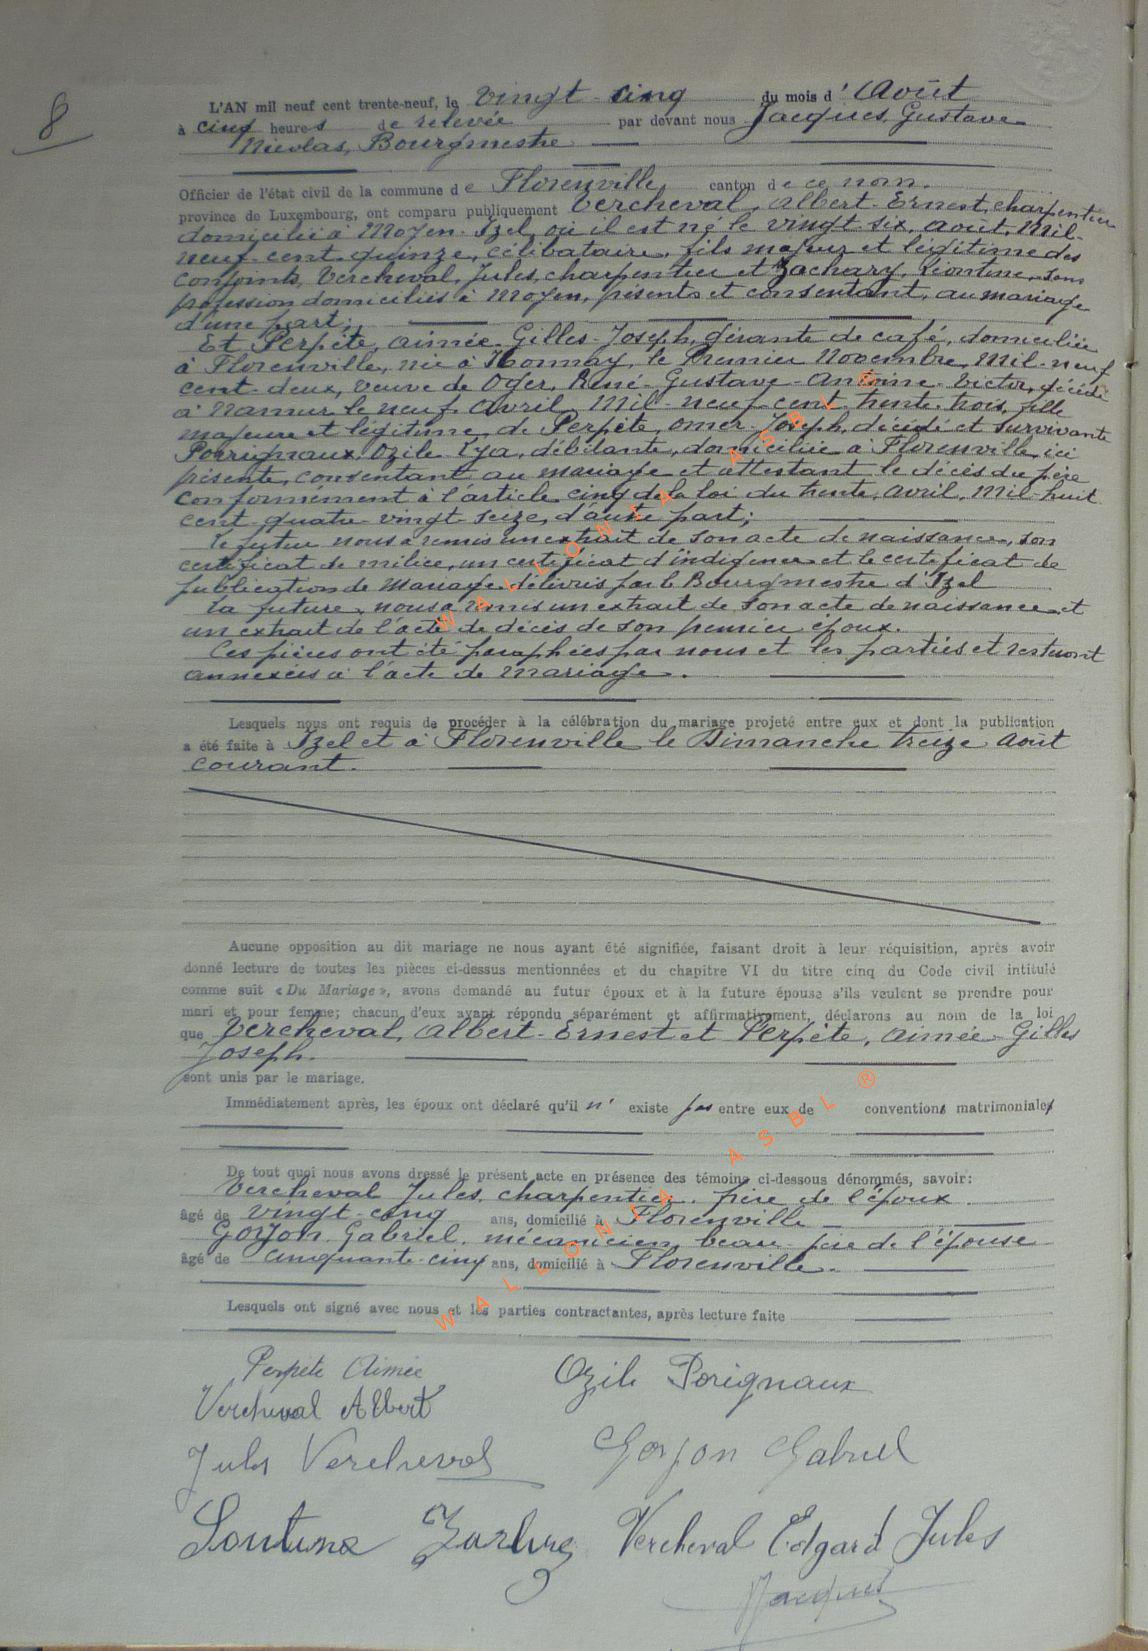 8
L'AN mil neuf cent trente-neuf, le vingt-cinq du mois d'Août
à cinq heures de relevée par devant nous Jacques, Gustave
Nicolas, Bourgmestre
Officier de l'état civil de la commune de Florenville canton de ce nom.
province de Luxembourg, ont comparu publiquement Vercheval, Albert-Ernest, charpentier
domicilié à Moyen-Izel, où il est né le vingt-six, août, Mil-
neuf-cent-quinze, célibataire, fils majeur et légitime des
conjoints, Vercheval, Jules, charpentier et Zachary, Léontine, sans
profession domiciliés à Moyen, présents et consentant, au mariage
d'une part;
Et Perpète, Aimée-Gilles-Joseph, gérante de café, domiciliée
à Florenville, née à Honnay, le Premier Novembre, Mil-neuf
cent-deux, veuve de Oger, René-Gustave-Antoine-Victor, décédé
à Namur le neuf Avril, Mil-neuf-cent-trente-trois, fille
majeure et légitime, de Perpète, Omer-Joseph, décédé et survivante
Porrignaux, Ozile Lya, débitante, domiciliée à Florenville, ici
présente, consentant au mariage et attestant le décès du père
conformément à l'article cinq de la loi du trente, avril, Mil-huit
cent quatre-vingt-seize, d'autre part;
Le futur nous a remis un extrait de son acte de naissance, son
certificat de milice, un certificat d'indigence et le certificat de
publication de Mariage délivrés par le Bourgmestre d'Izel
La future, nous a remis un extrait de son acte de naissance et
un extrait de l'acte de décès de son premier époux.
Ces pièces ont été paraphées par nous et les parties et resteront
annexées à l'acte de mariage.
Lesquels nous ont requis de procéder à la célébration du mariage projeté entre eux et dont la publication
a été faite à Izel et à Florenville le Dimanche treize Août
courant.
Aucune opposition au dit mariage ne nous ayant été signifiée, faisant droit à leur réquisition, après avoir
donné lecture de toutes les pièces ci-dessus mentionnées et du chapitre VI du titre cinq du Code civil intitulé
comme suit « Du Mariage », avons demandé au futur époux et à la future épouse s'ils veulent se prendre pour
mari et pour femme; chacun d'eux ayant répondu séparément et affirmativement, déclarons au nom de la loi
que Vercheval, Albert-Ernest et Perpète, Aimée-Gilles
Joseph.
sont unis par le mariage.
Immédiatement après, les époux ont déclaré qu'il n'existe pas entre eux de conventions matrimoniales
De tout quoi nous avons dressé le présent acte en présence des témoins ci-dessous dénommés, savoir:
Vercheval Jules, charpentier, frère de l'époux
âgé de vingt-cinq ans, domicilié à Florenville
Gorjon Gabriel, mécanicien, beau-père de l'épouse
âgé de cinquante-cinq ans, domicilié à Florenville.
Lesquels ont signé avec nous et les parties contractantes, après lecture faite
Perpète Aimée Ozile Porignaux
Vercheval Albert
Jules Vercheval Gorjon Gabriel
Vercheval Edgard Jules
Jacques
WALLONIA ASBL ®
WALLONIA ASBL ®